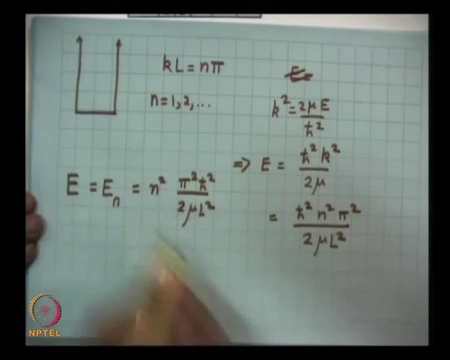 kL = nπ
n = 1, 2, ...
k² = 2μE / ħ²
⇒ E = ħ²k² / 2μ
= ħ²n²π² / 2μL²
E = Eₙ = n² π²ħ² / 2μL²
NPTEL